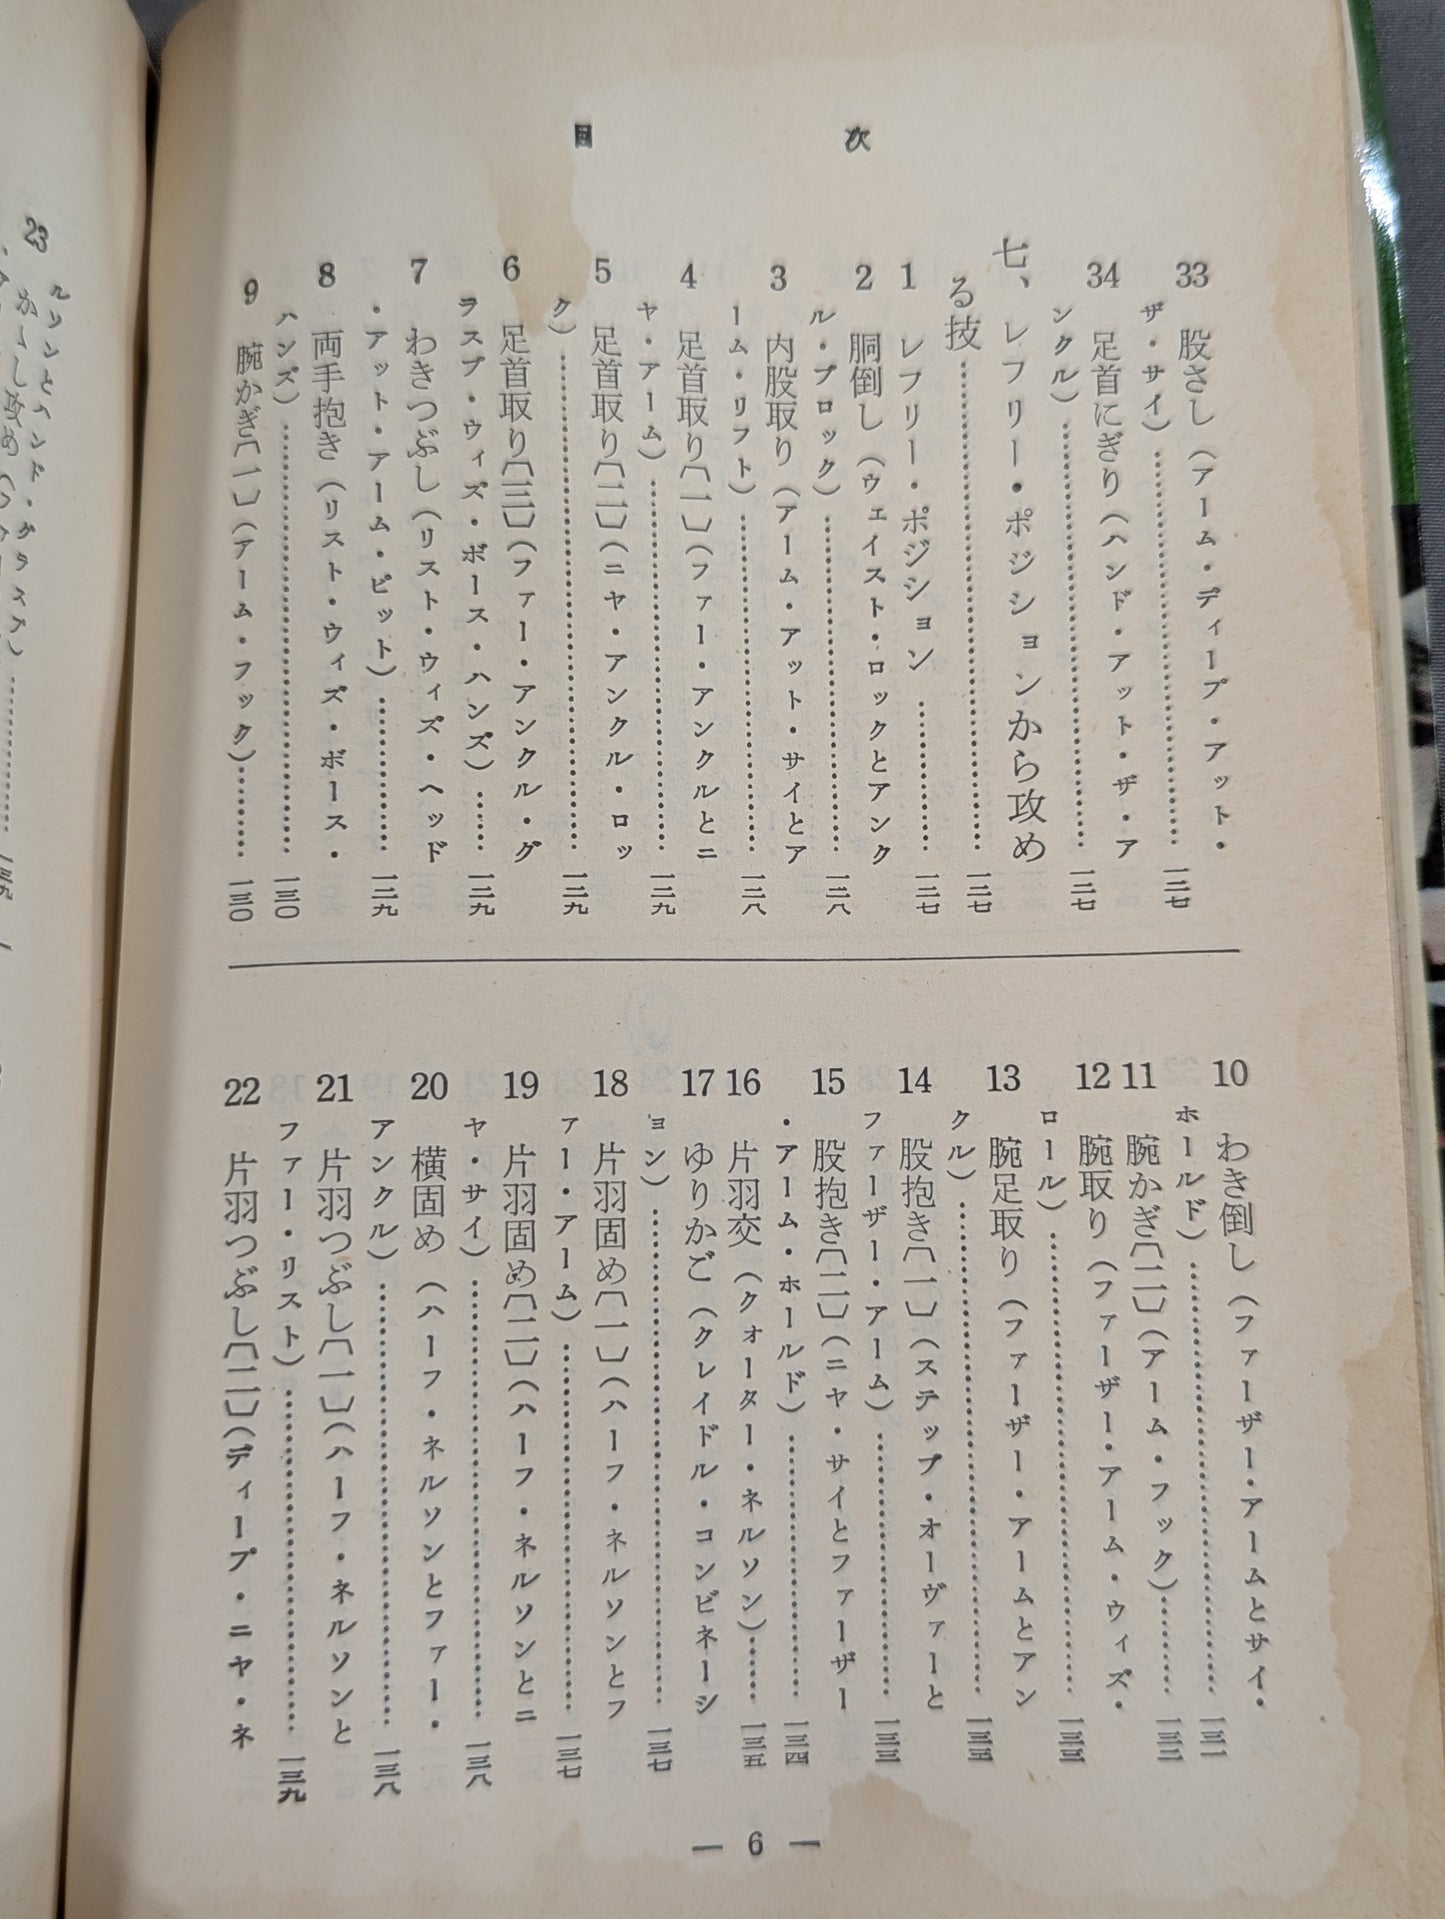 目次
33 股さし（アーム・ディープ・アット・
ザ・サイ）……一二七
34 足首にぎり（ハンド・アット・ザ・ア
ンクル）……一二七
七、レフリー・ポジションから攻め
る技……一二七
1 レフリー・ポジション……一二七
2 胴倒し（ウェイスト・ロックとアンク
ル・ブロック）……一二八
3 内股取り（アーム・アット・サイとア
ーム・リフト）……一二八
4 足首取り〔一〕（ファー・アンクルとニ
ヤ・アーム）……一二九
5 足首取り〔二〕（ニヤ・アンクル・ロッ
ク）……一二九
6 足首取り〔三〕（ファー・アンクル・グ
ラスプ・ウィズ・ボース・ハンズ）……一二九
7 わきつぶし（リスト・ウィズ・ヘッド
・アット・アーム・ピット）……一二九
8 両手抱き（リスト・ウィズ・ボース・
ハンズ）……一三〇
9 腕かぎ〔一〕（アーム・フック）……一三〇
10 わき倒し（ファーザー・アームとサイ・
ホールド）……一三一
11 腕かぎ〔二〕（アーム・フック）……一三二
12 腕取り（ファーザー・アーム・ウィズ・
ロール）……一三三
13 腕足取り（ファーザー・アームとアン
クル）……
14 股抱き〔一〕（ステップ・オーヴァーと
ファーザー・アーム）……一三三
15 股抱き〔二〕（ニヤ・サイとファーザー
・アーム・ホールド）……一三四
16 片羽交（クォーター・ネルソン）……一三五
17 ゆりかご（クレイドル・コンビネーシ
ョン）……一三七
18 片羽固め〔一〕（ハーフ・ネルソンとフ
ァー・アーム）……一三七
19 片羽固め〔二〕（ハーフ・ネルソンとニ
ヤ・サイ）……一三八
20 横固め（ハーフ・ネルソンとファー・
アンクル）……一三八
21 片羽つぶし〔一〕（ハーフ・ネルソンと
ファー・リスト）……一三九
22 片羽つぶし〔二〕（ディープ・ニヤ・ネ
— 6 —
ルソンとハンド・グラスプ）……一三九
23